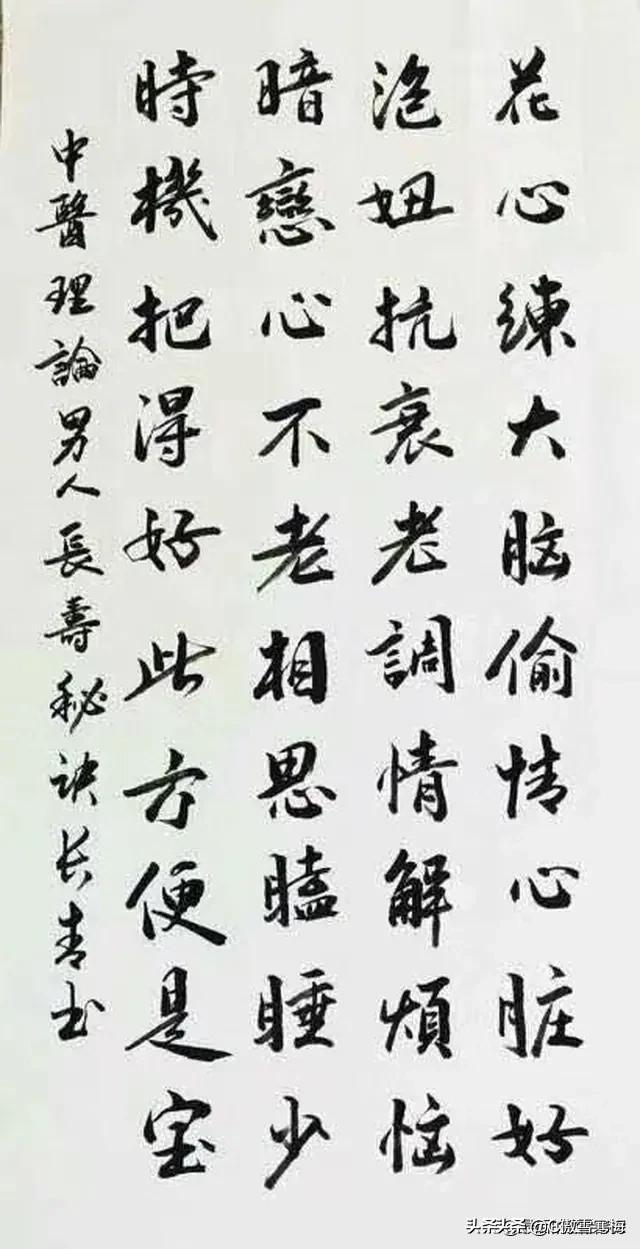 花心練大脑偷情心脏好
泡妞抗衰老調情解煩恼
暗戀心不老相思瞌睡少
時機把得好此方便是宝
中醫理論男人長壽秘诀长青书